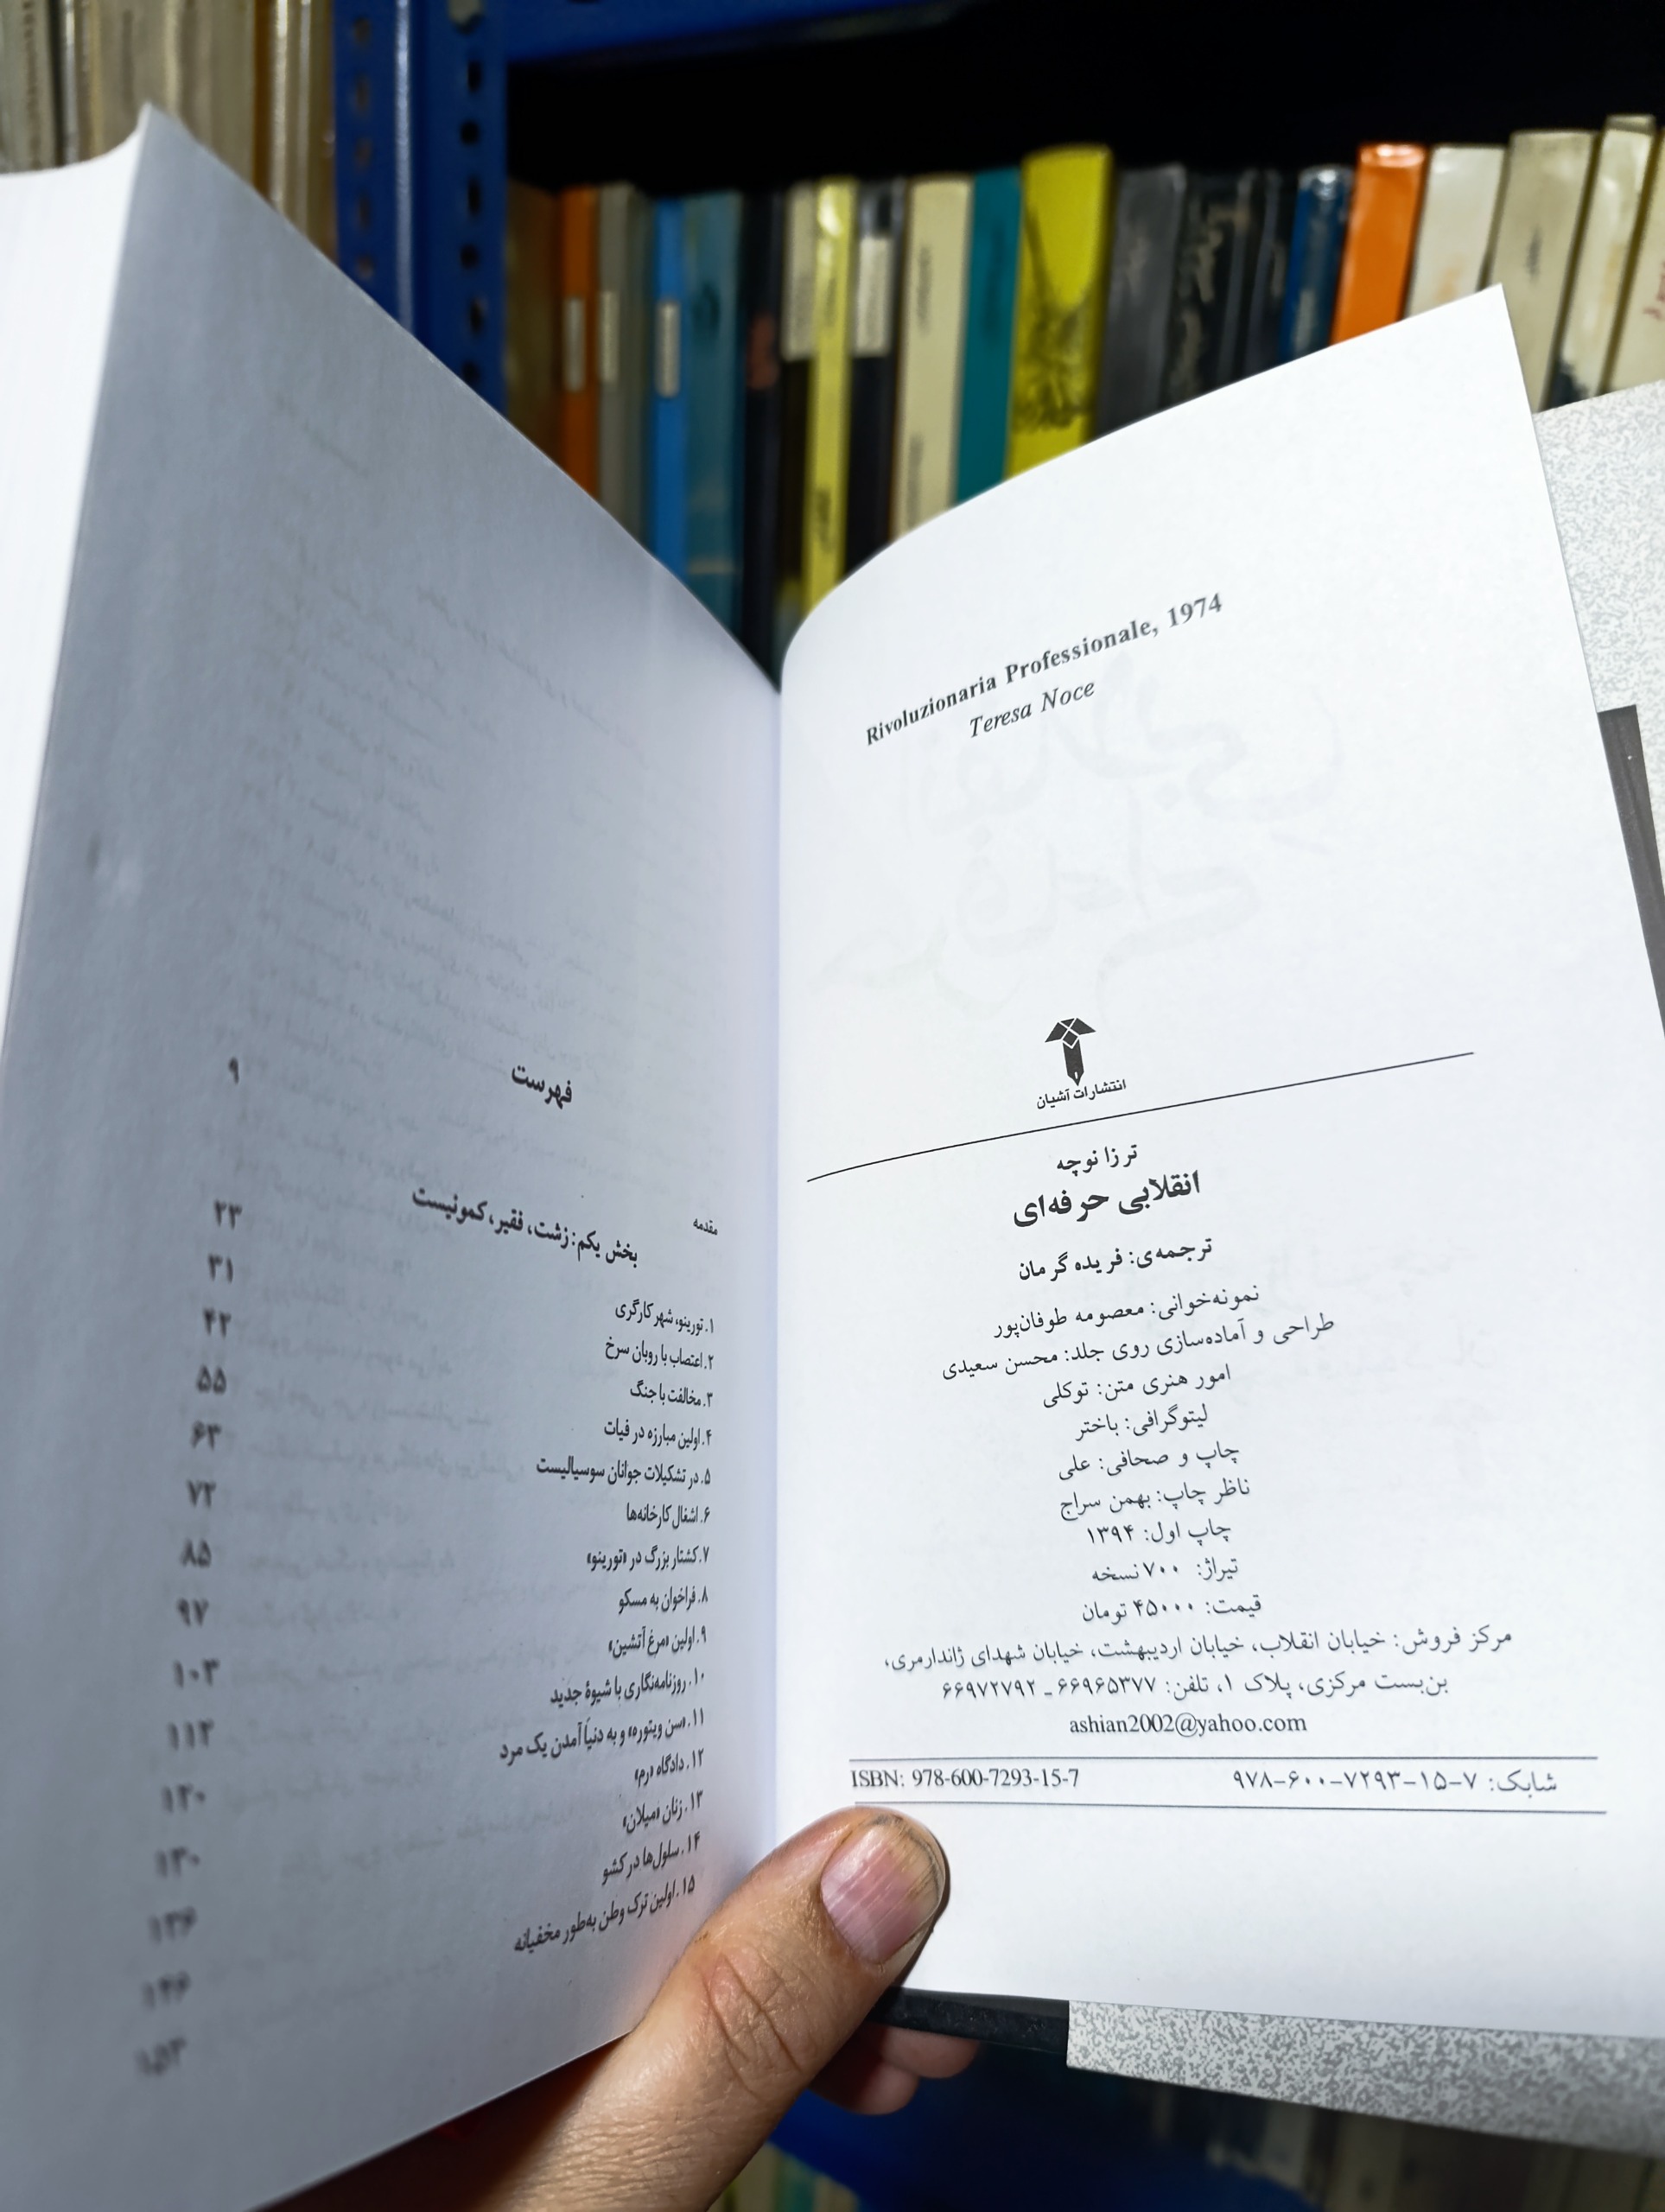 Rivoluzionaria Professionale, 1974
Teresa Noce
انتشارات آشیان
ترزا نوچه
انقلابی حرفه‌ای
ترجمه‌ی: فریده گرمان
نمونه‌خوانی: معصومه طوفان‌پور
طراحی و آماده‌سازی روی جلد: محسن سعیدی
امور هنری متن: توکلی
لیتوگرافی: باختر
چاپ و صحافی: علی
ناظر چاپ: بهمن سراج
چاپ اول: ۱۳۹۴
تیراژ: ۷۰۰ نسخه
قیمت: ۴۵۰۰۰ تومان
مرکز فروش: خیابان انقلاب، خیابان اردیبهشت، خیابان شهدای ژاندارمری،
بن‌بست مرکزی، پلاک ۱، تلفن: ۶۶۹۶۵۳۷۷ ـ ۶۶۹۷۲۷۹۲
ashian2002@yahoo.com
شابک: ۷-۱۵-۷۲۹۳-۶۰۰-۹۷۸ ISBN: 978-600-7293-15-7
فهرست
مقدمه ۹
بخش یکم: زشت، فقیر، کمونیست
۱. تورینو، شهر کارگری ۲۳
۲. اعتصاب با روبان سرخ ۳۱
۳. مخالفت با جنگ ۴۲
۴. اولین مبارزه در فیات ۵۵
۵. در تشکیلات جوانان سوسیالیست ۶۳
۶. اشغال کارخانه‌ها ۷۲
۷. کشتار بزرگ در «تورینو» ۸۵
۸. فراخوان به مسکو ۹۷
۹. اولین «مرغ آتشین» ۱۰۳
۱۰. روزنامه‌نگاری با شیوۀ جدید ۱۱۲
۱۱. «سن ویتوره» و به دنیا آمدن یک مرد ۱۲۰
۱۲. دادگاه «رم» ۱۳۰
۱۳. زنان «میلان» ۱۳۶
۱۴. سلول‌ها در کشو ۱۴۶
۱۵. اولین ترک وطن به‌طور مخفیانه ۱۵۳